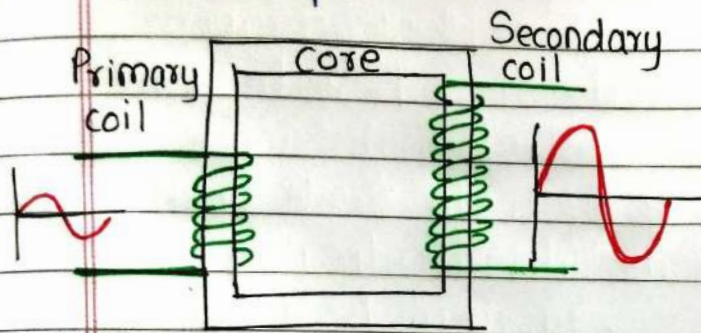 Primary
coil
Core
Secondary
coil